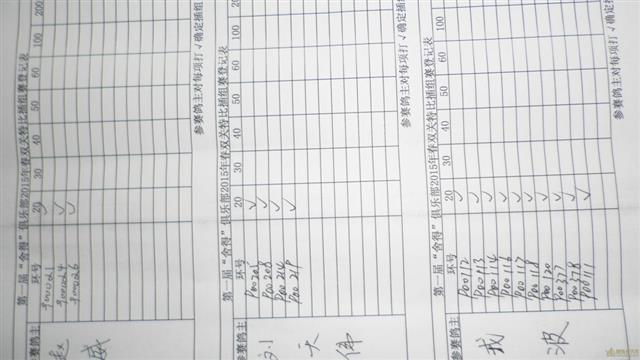 第一届“舍得”俱乐部2015年春双关特比插组赛登记表
参赛鸽主 环号 20 30 40 50 60 100 200
赵威
900021
900024
900026
参赛鸽主对每项打√确定插组
第一届“舍得”俱乐部2015年春双关特比插组赛登记表
参赛鸽主 环号 20 30 40 50 60 100
刘天伟
P00205
P00208
P00214
P00219
参赛鸽主对每项打√确定插组
第一届“舍得”俱乐部2015年春双关特比插组赛登记表
参赛鸽主 环号 20 30 40 50 60 100
波
P00112
P00113
P00114
P00116
P00117
P00118
P00120
P00377
P00378
P00111
参赛鸽主对每项打√确定插组